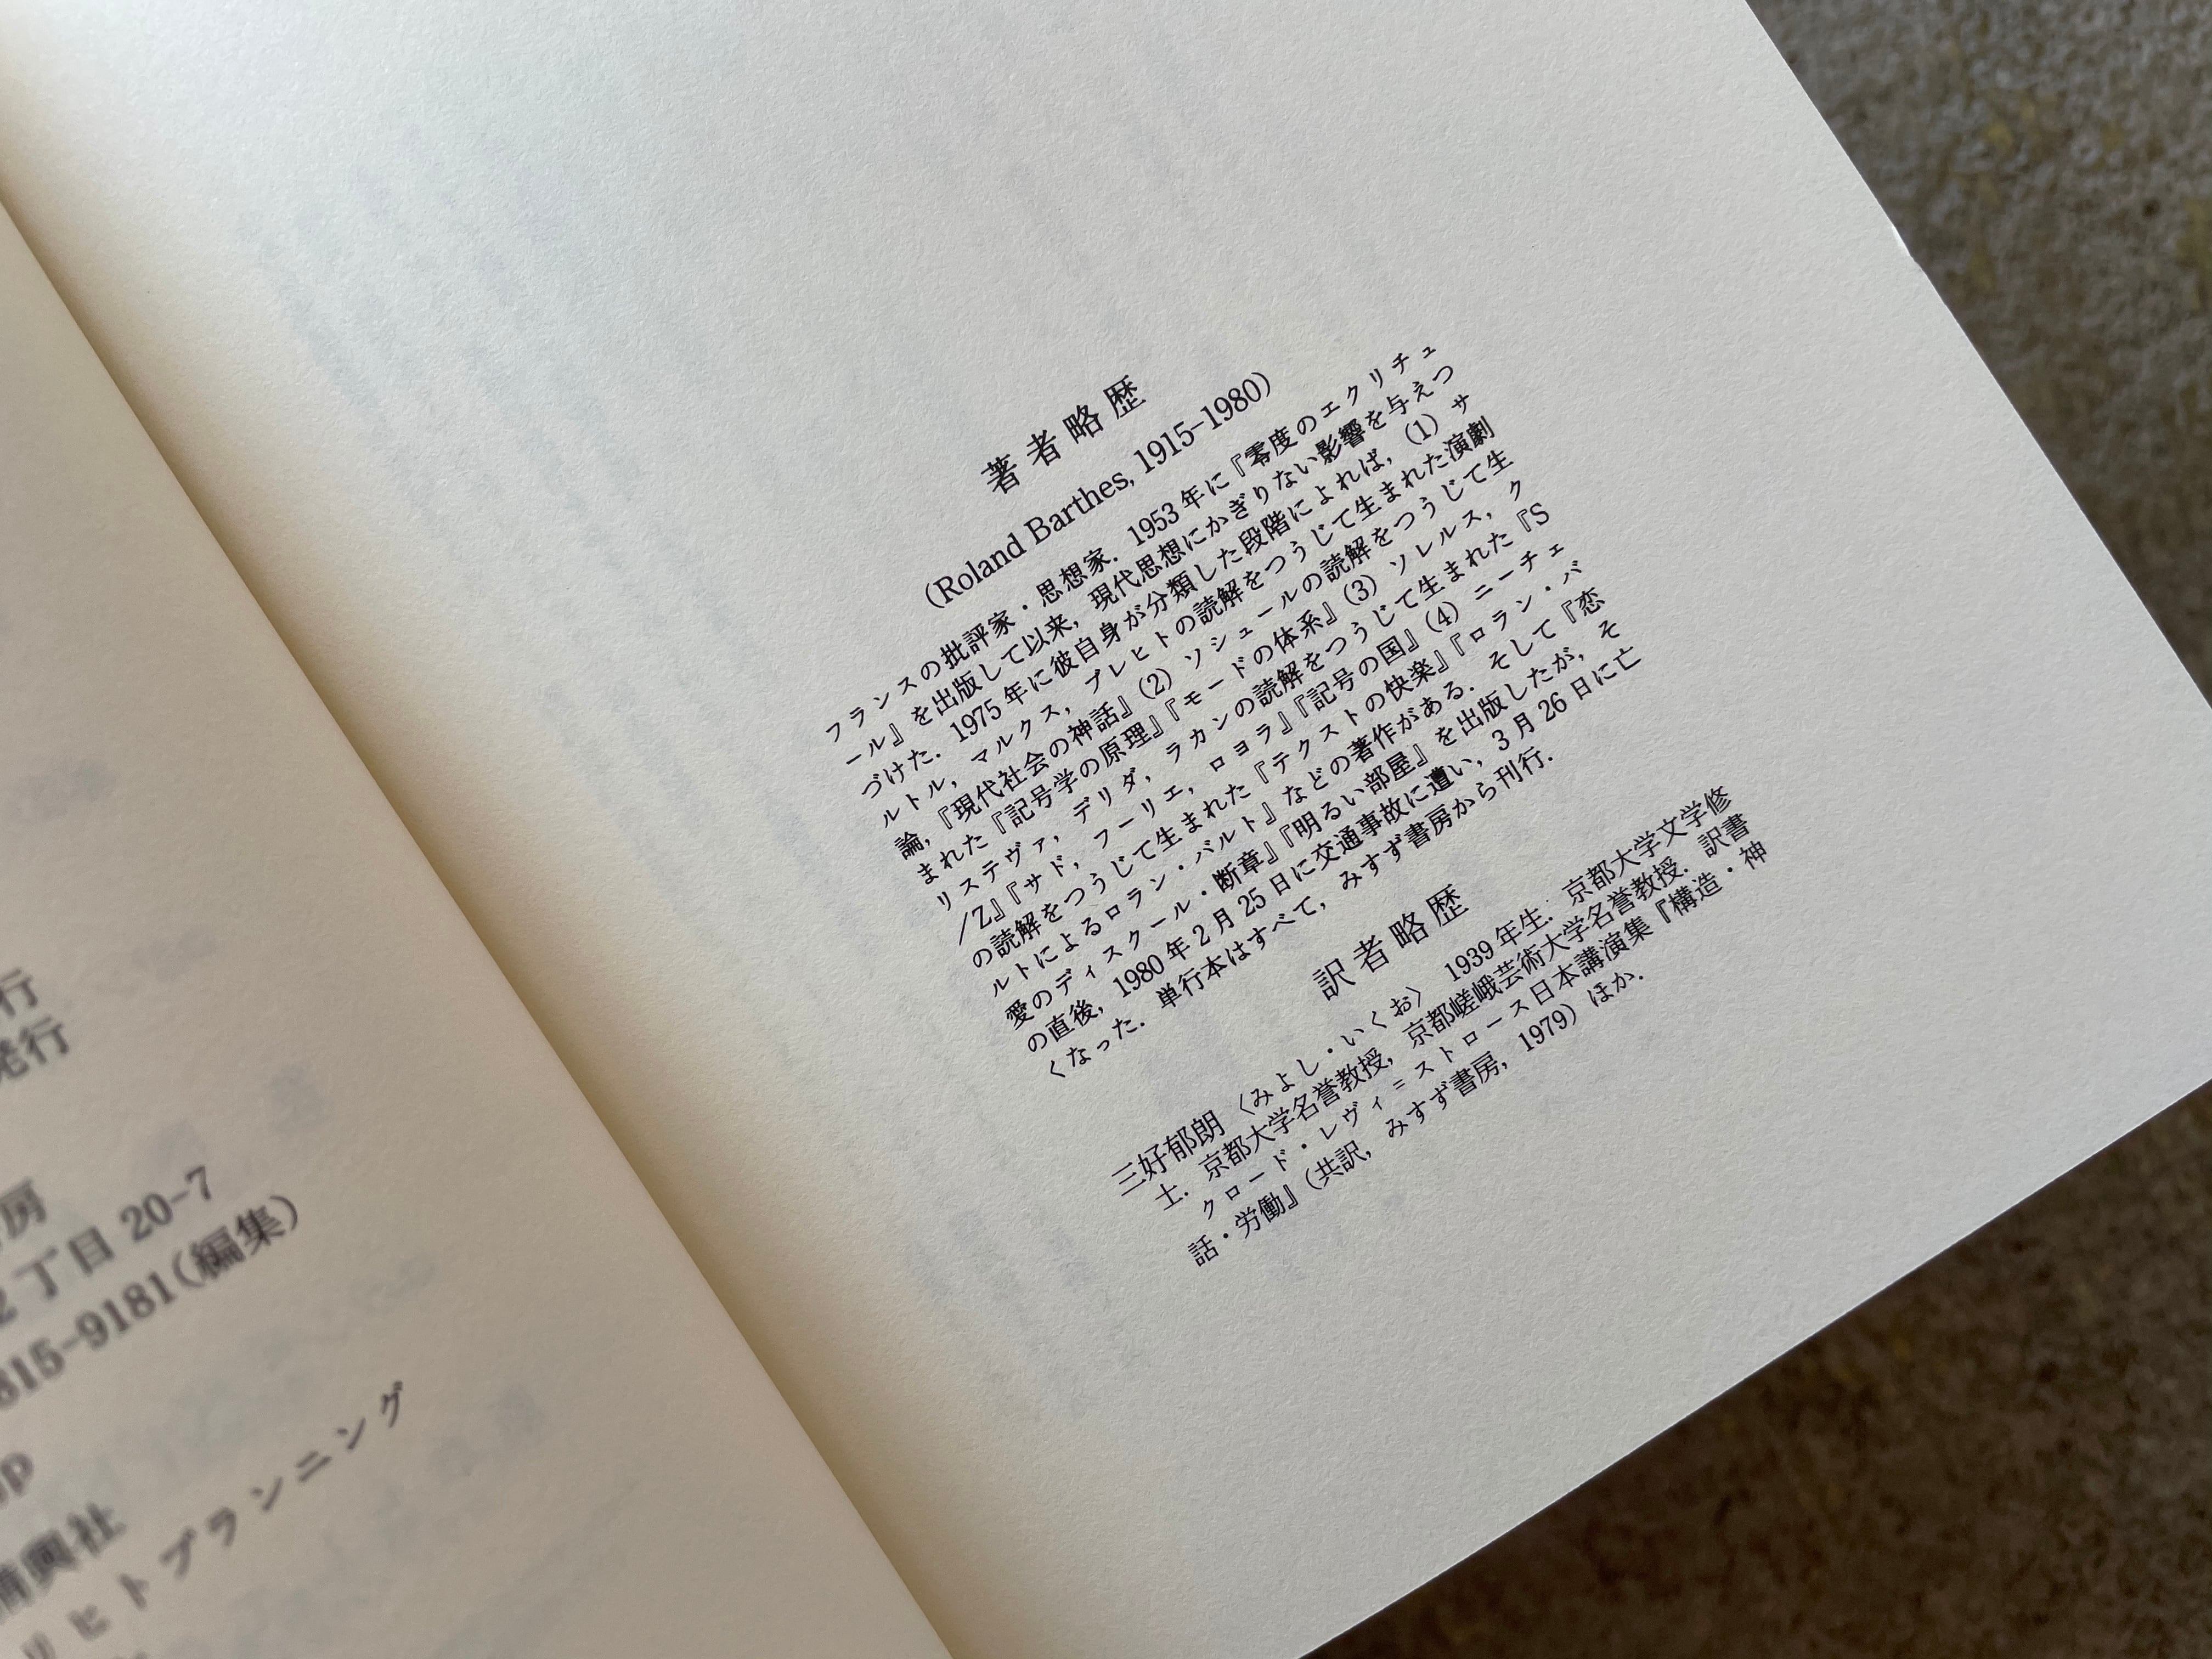 行
発行
房
2丁目 20-7
815-9181(編集)
精興社
リヒトプランニング
著者略歴
(Roland Barthes, 1915-1980)
フランスの批評家・思想家．1953年に『零度のエクリチュ
ール』を出版して以来，現代思想にかぎりない影響を与えつ
づけた．1975年に彼自身が分類した段階によれば，(1) サ
ルトル，マルクス，ブレヒトの読解をつうじて生まれた演劇
論，『現代社会の神話』(2) ソシュールの読解をつうじて生
まれた『記号学の原理』『モードの体系』(3) ソレルス，ク
リステヴァ，デリダ，ラカンの読解をつうじて生まれた『S
/Z』『サド，フーリエ，ロヨラ』『記号の国』(4) ニーチェ
の読解をつうじて生まれた『テクストの快楽』『ロラン・バ
ルトによるロラン・バルト』などの著作がある．そして『恋
愛のディスクール・断章』『明るい部屋』を出版したが，そ
の直後，1980年2月25日に交通事故に遭い，3月26日に亡
くなった．単行本はすべて，みすず書房から刊行．
訳者略歴
三好郁朗〈みよし・いくお〉 1939年生．京都大学文学修
士．京都大学名誉教授，京都嵯峨芸術大学名誉教授．訳書
クロード・レヴィ＝ストロース日本講演集『構造・神
話・労働』(共訳，みすず書房，1979) ほか．